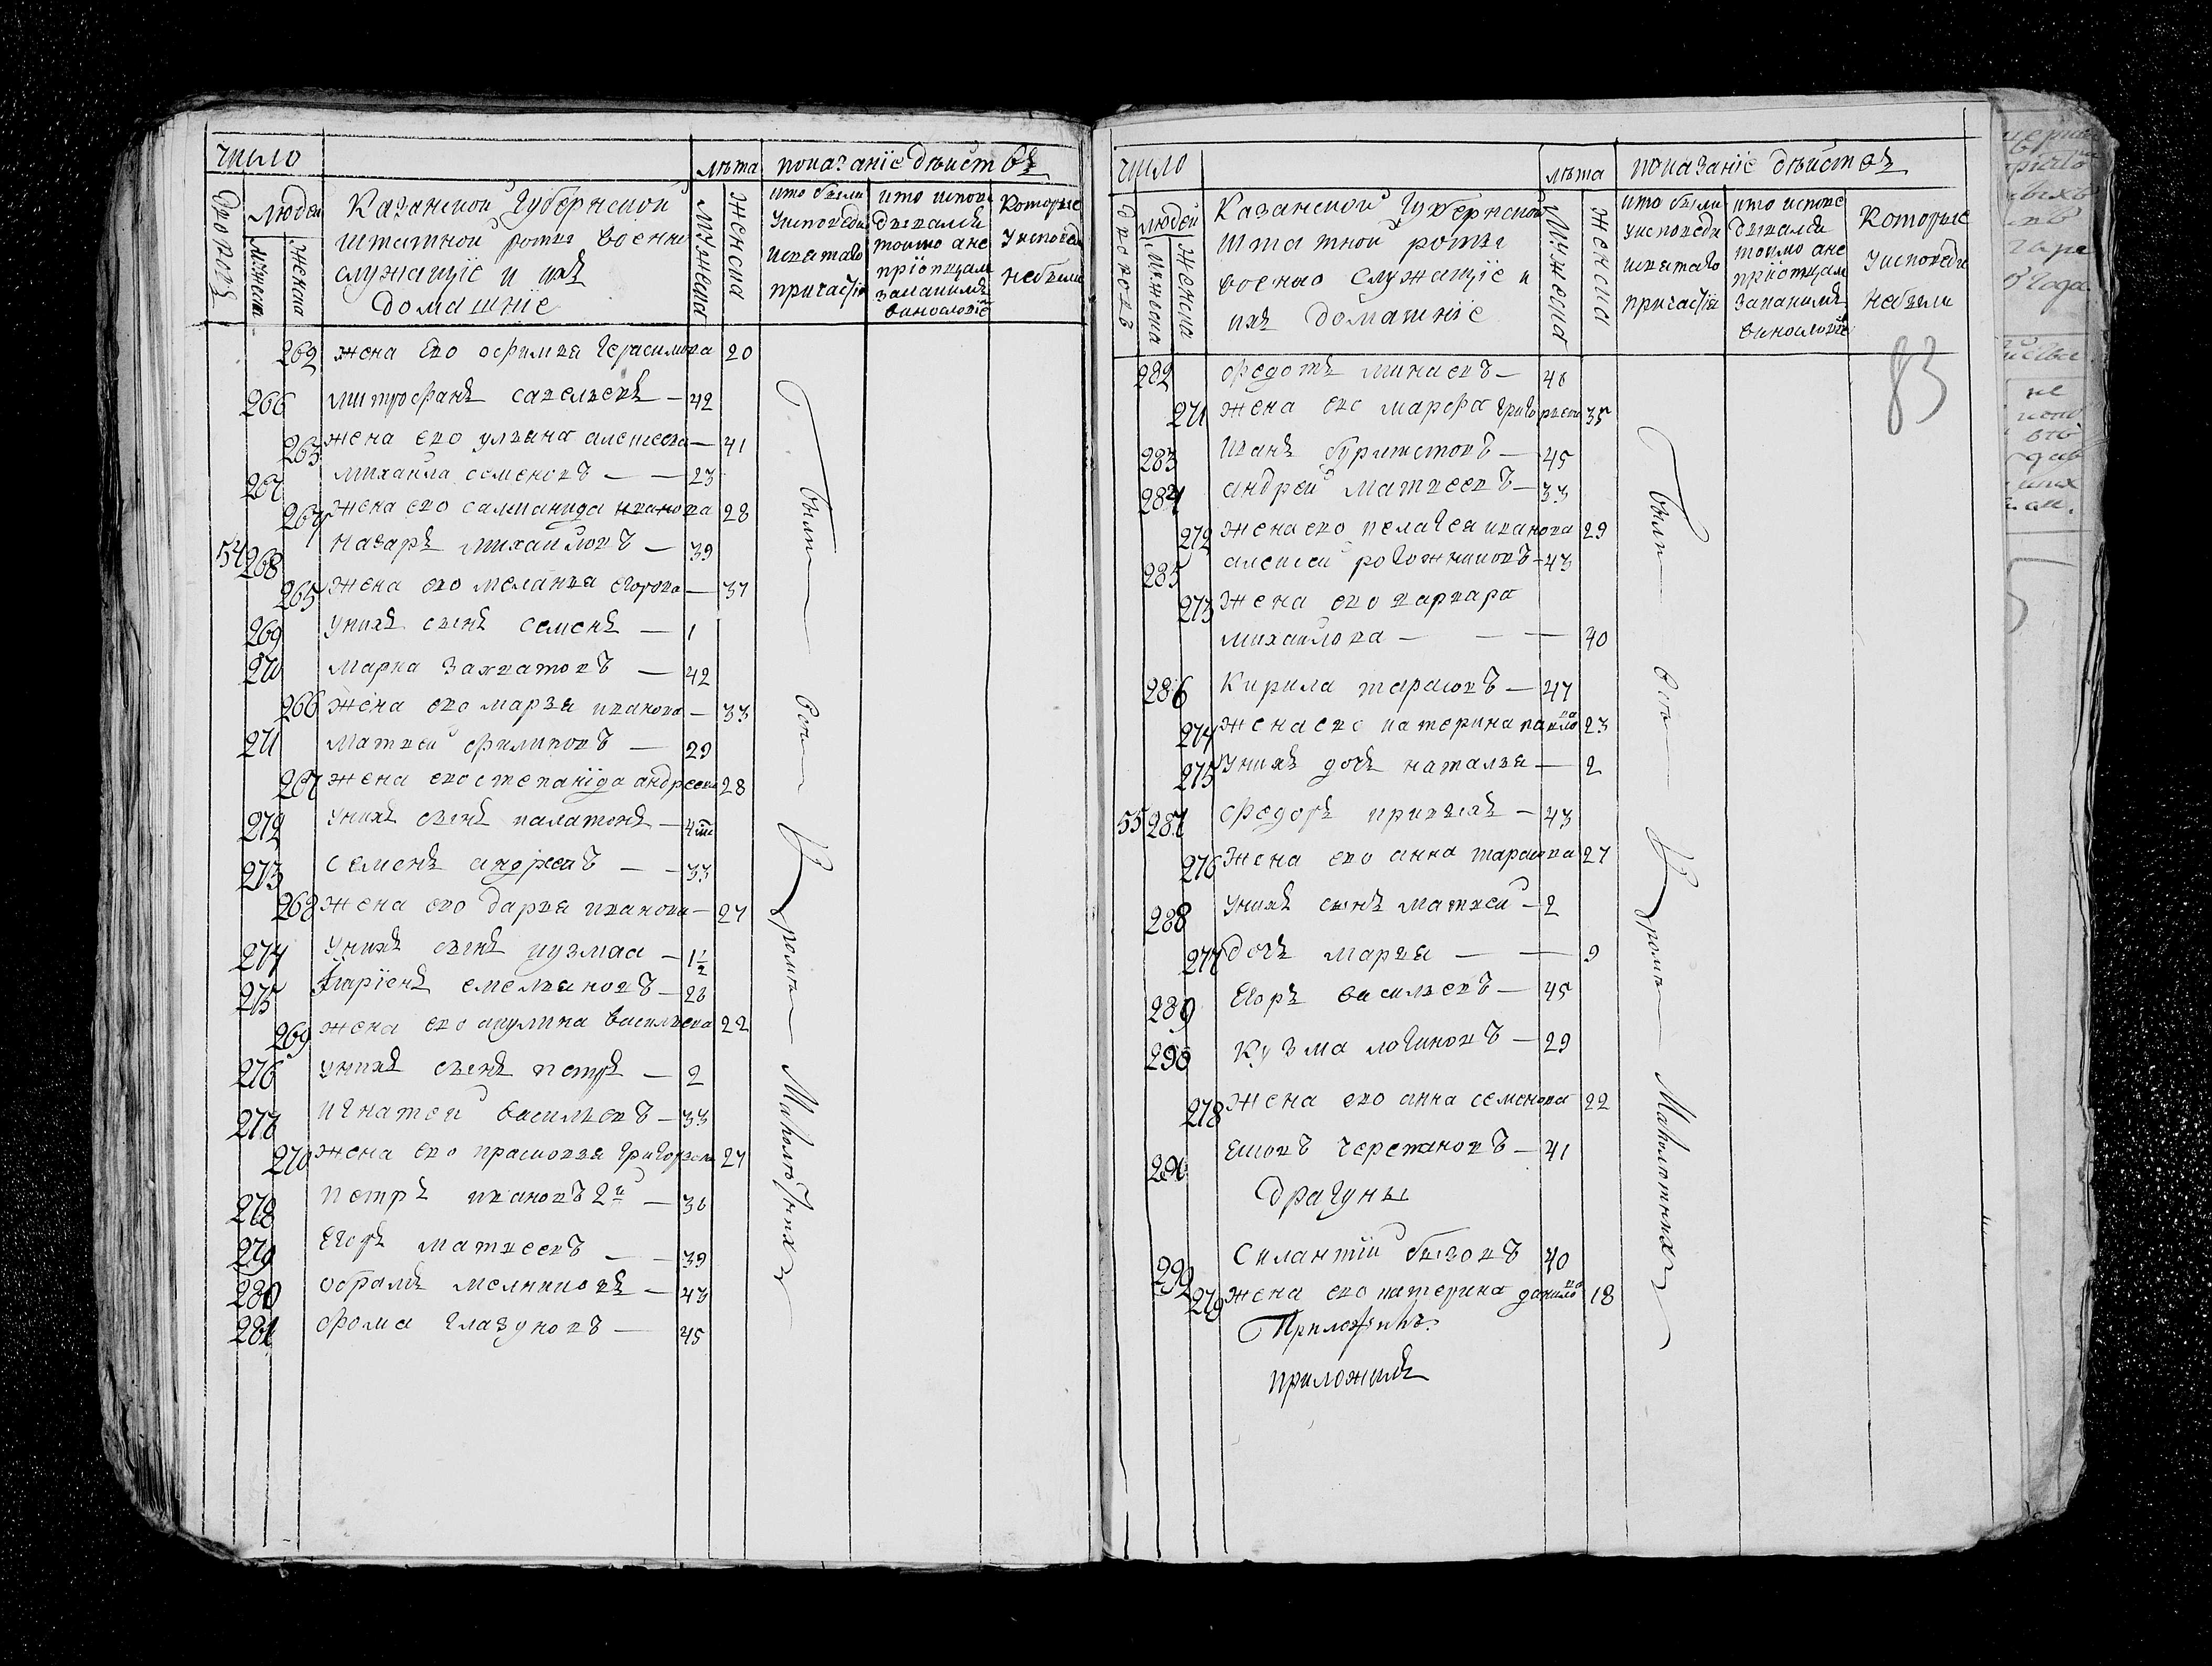 число
лѣта показанїе дѣиствъ
дворовъ
людеи
мужеска
женска
Казанской Губернской
штатной роты военно
служащїе и ихъ
домашнїе
мужеска
женска
кто были
уисповеди
исвятаго
причастїя
кто испове
дывался
токмо ане
прїопщалс
закакимъ
винословїе
Которые
Уисповеди
небыли
262 жена ево офимья герасимова 20
266 митрофанъ савельевъ — 42
263 жена ево ульяна алексеева — 41
267 михаила семеновъ — — 23
264 жена ево саламанида иванова 28
54 268 назаръ михаиловъ — 39
265 жена ево меланья егорова — 37
269 унихъ сынъ семенъ — 1
270 марка захватовъ — 42
266 жена ево марья иванова — 33
271 матвеи филиповъ — 29
267 жена ево степанїда андреева 28
272 унихъ сынъ палатонъ — 4
273 семенъ андреевъ — — 33
268 жена ево дарья иванова — 27
274 унихъ сынъ кузмаа — 1½
275 ларїенъ емельяновъ — 28
269 жена ево акулина васильева 22
276 унихъ сынъ петръ — 2
277 игнатеи васильевъ — 33
270 жена ево прасковья григорьева 27
278 петръ ивановъ 2й — 36
279 егоръ матвеевъ — — 39
280 обрамъ мелниковъ — 43
281 фома глазуновъ — 45
были
вси
Кромъ
Малолотныхъ
число
лѣта показанїе дѣиствъ
дворовъ
людеи
мужеска
женска
Казанской Губернской
штатной роты
военно служащїе и
ихъ домашнїе
мужеска
женска
кто были
уисповеди
исвятаго
причастїя
кто испове
дывался
токмо ане
прїопщался
закакимъ
винословїе
Которые
Уисповеди
небыли
83
282 федотъ минаевъ — 46
271 жена ево марфа григорьева 35
283 иванъ — 45
284 андреи матвеевъ — 33
272 жена ево пелагея иванова 29
285 алексеи рогожниковъ — 43
273 жена ево варвара
михаилова — — — 40
286 Кирила тарасовъ — 47
274 жена ево катерина павлова 23
275 унихъ дочь наталья — 2
55 287 федоръ — 43
276 жена ево анна тарасова 27
288 унихъ сынъ матвеи — 2
277 дочь марья — — 9
289 Егоръ васильевъ — 45
290 Кузма логиновъ — 29
278 жена ево анна семенова 22
291 — 41
драгуны
292 Силантїи бызовъ 40
279 жена ево катерина данилова 18
приложилъ
были
вси
Кромъ
Малолотныхъ